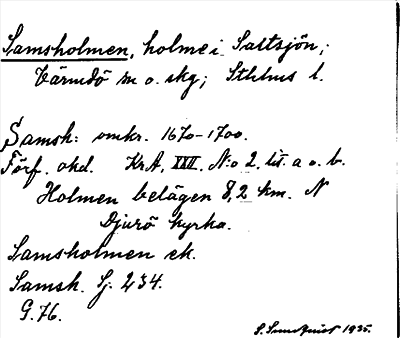 Samsholmen, holme i Saltsjön,
Värmdö sn o. skg; Sthlms l.
Samsh: omkr. 1670-1700.
Förf. okd. KrA, XXII, N:o 2, lit. a o. b.
Holmen belägen 8,2 km. N
Djurö kyrka.
Samsholmen ek.
Samsh. Sj. 234.
G.76.
S. Sundquist 1935.